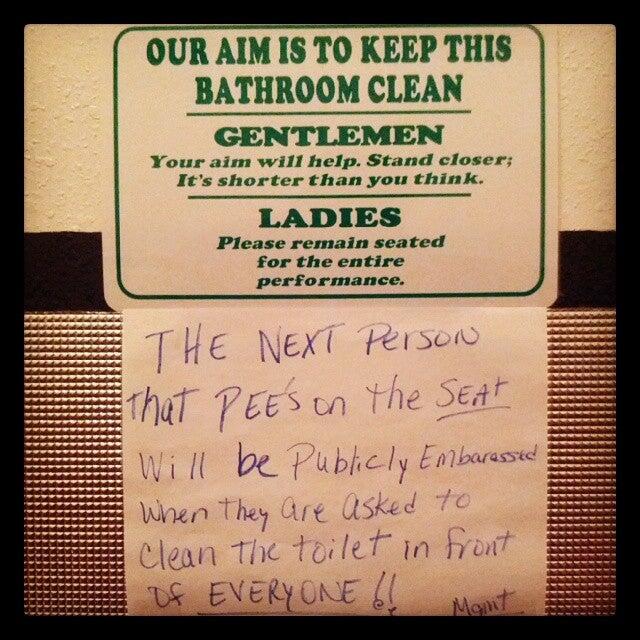 OUR AIM IS TO KEEP THIS
BATHROOM CLEAN
GENTLEMEN
Your aim will help. Stand closer;
It's shorter than you think.
LADIES
Please remain seated
for the entire
performance.
THE NEXT PERSON
That PEE's on the SEAt
Will be Publicly Embaressed
When they are asked to
Clean the toilet in front
OF EVERYONE!!
Mgmt